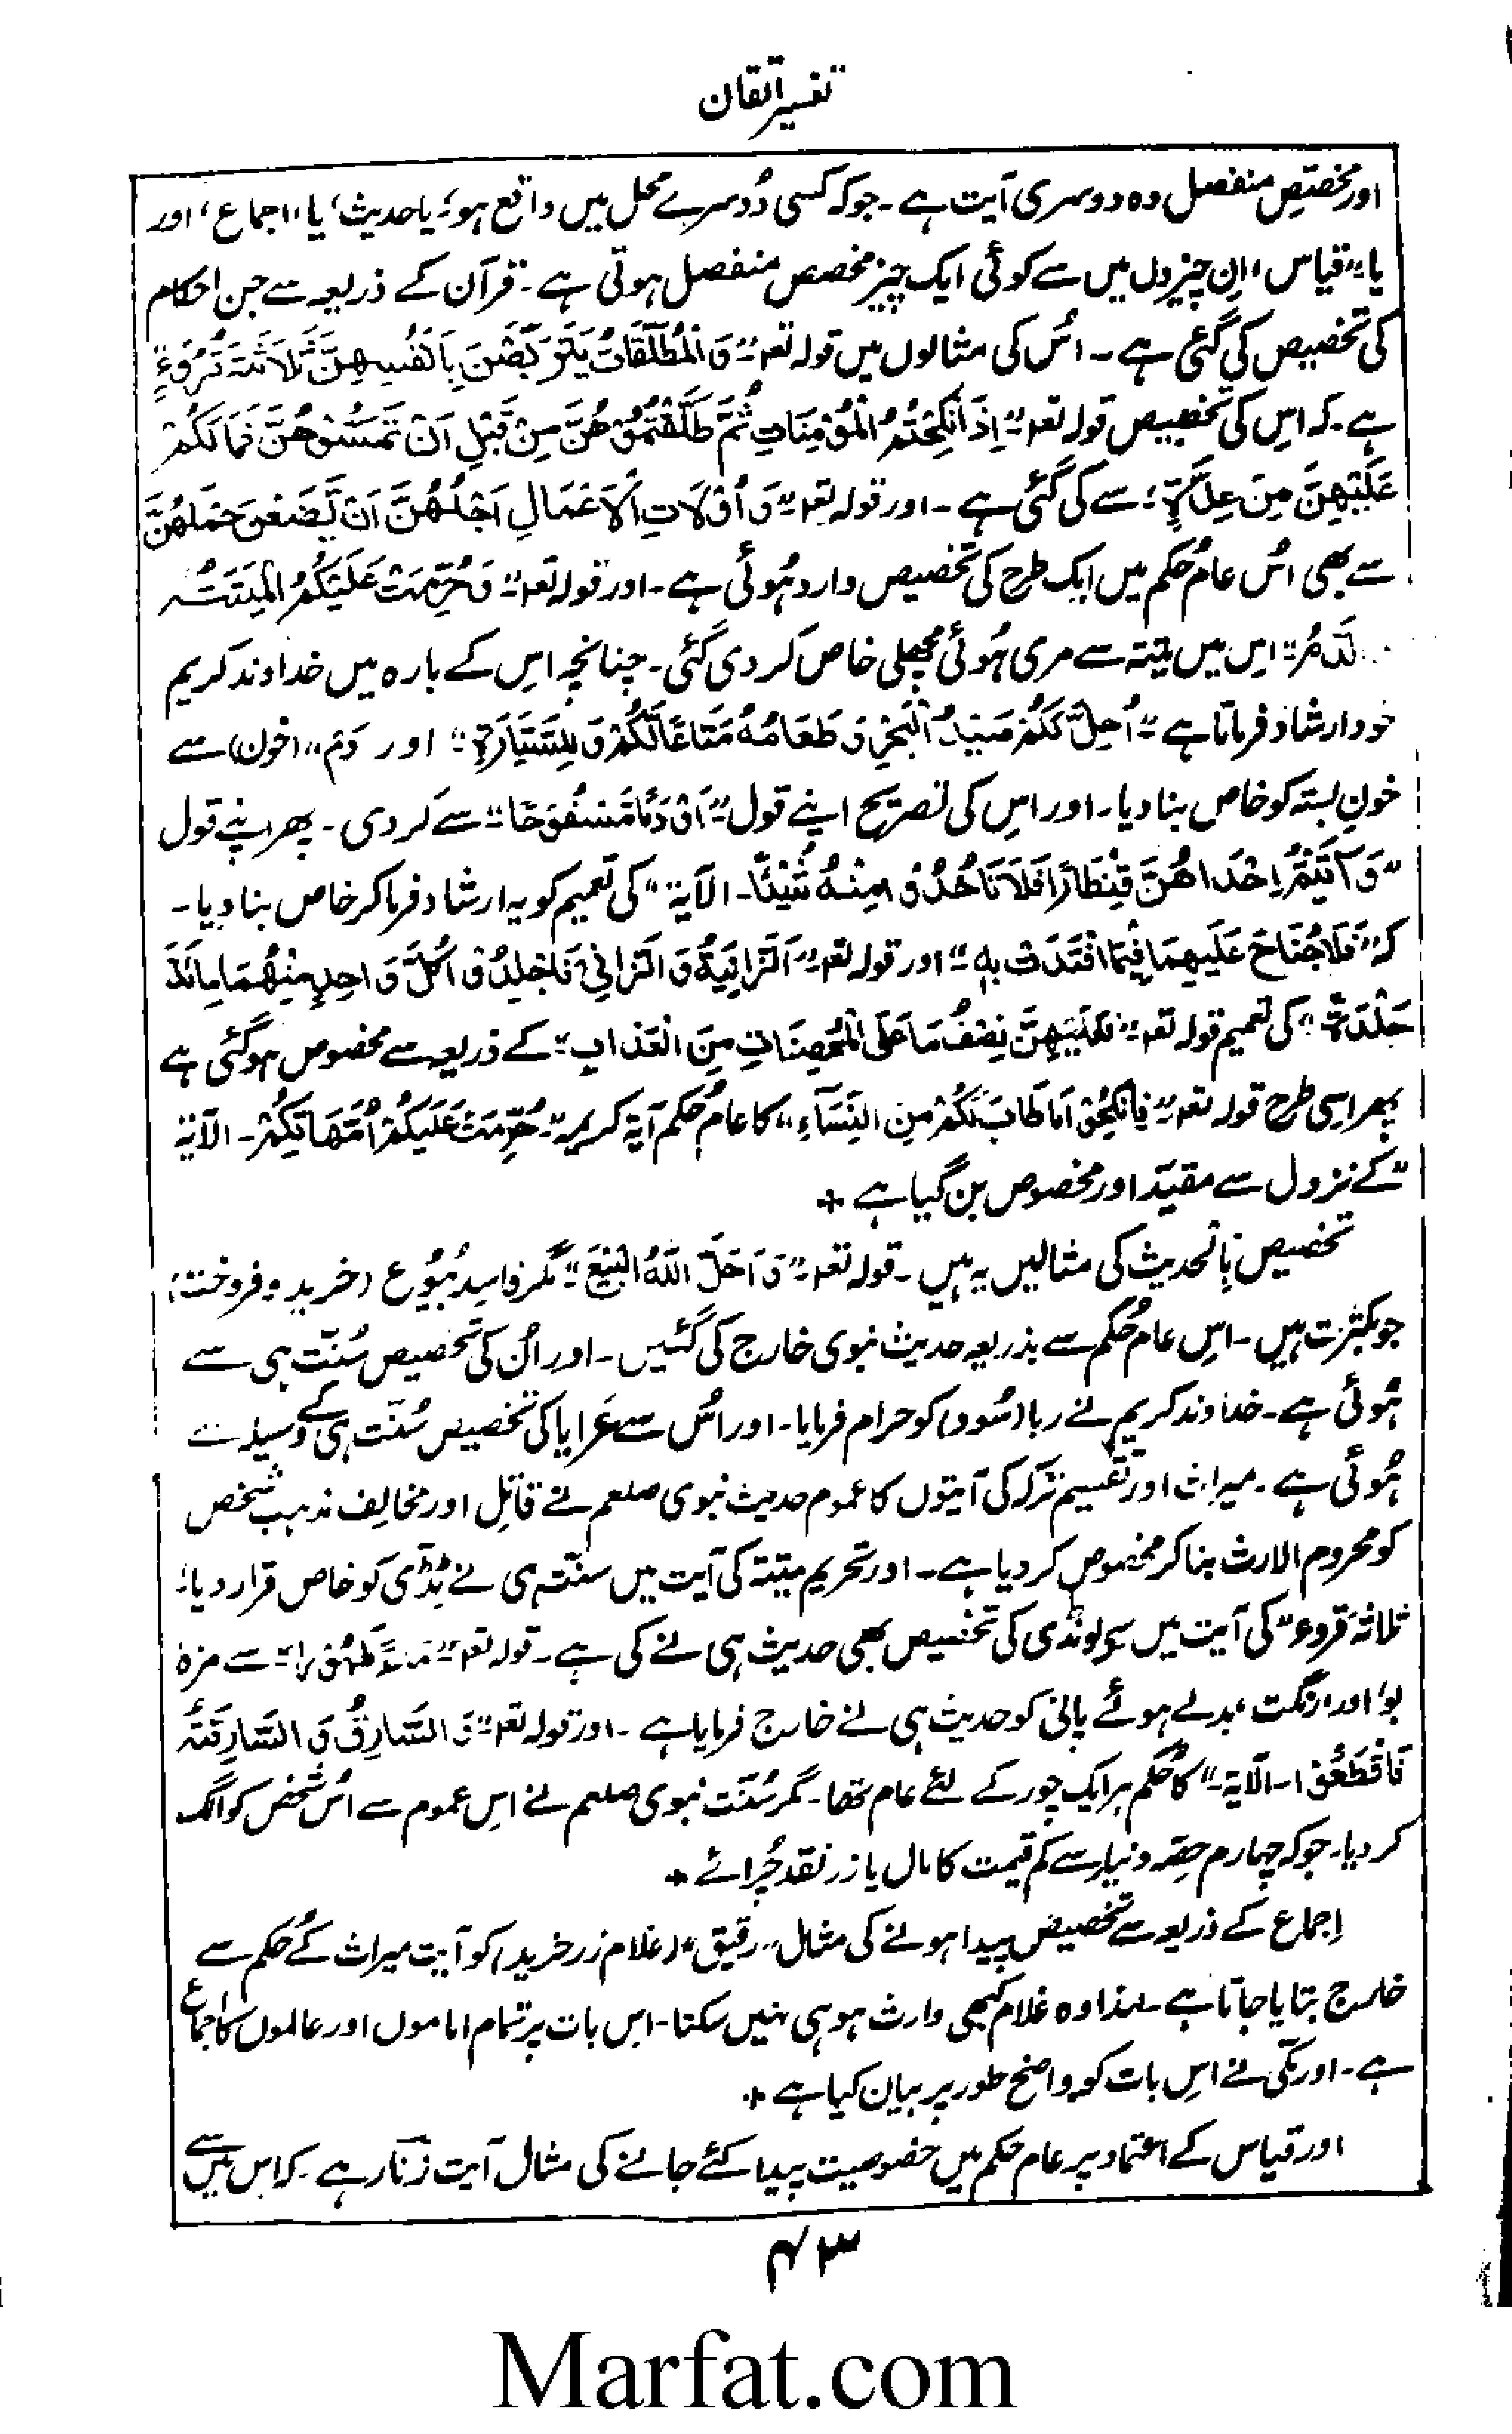 تفسیر اتقان
اور مخصّصِ منفصل وہ دوسری آیت ہے۔ جو کہ کسی دُوسرے محل میں واقع ہو، یا حدیث، یا "اجماع، اور
یا "قیاس، اِن چیزوں میں سے کوئی ایک چیز مخصص منفصل ہوتی ہے۔ قرآن کے ذریعہ سے جن احکام
کی تخصیص کی گئی ہے۔ اُس کی مثالوں میں قولہ تعہ "وَالْمُطَلَّقَاتُ يَتَرَبَّصْنَ بِاَنْفُسِهِنَّ ثَلَاثَةَ قُرُوْءٍ
ہے۔ کہ اِس کی تخصیص قولہ تعہ "اِذَا نَكَحْتُمُ الْمُؤْمِنَاتِ ثُمَّ طَلَّقْتُمُوْهُنَّ مِنْ قَبْلِ اَنْ تَمَسُّوْهُنَّ فَمَا لَكُمْ
عَلَيْهِنَّ مِنْ عِدَّةٍ" سے کی گئی ہے۔ اور قولہ تعہ "وَاُوْلَاتِ الْاَحْمَالِ اَجَلُهُنَّ اَنْ يَّضَعْنَ حَمْلَهُنَّ
سے بھی اُس عام حُکم میں ایک طرح کی تخصیص وارد ہُوئی ہے۔ اور قولہ تعہ "وَحُرِّمَتْ عَلَيْكُمُ الْمَيْتَتُہ
لدَّمُ" اِس میں میتہ سے مری ہُوئی مچھلی خاص کر دی گئی۔ چنانچہ اِس کے بارہ میں خداوند کریم
خود ارشاد فرماتا ہے "اُحِلَّ لَكُمْ صَيْدُ الْبَحْرِ وَطَعَامُهٗ مَتَاعًا لَّكُمْ وَلِلسَّيَّارَةِ" اور دَم" (خون) سے
خونِ بستہ کو خاص بنا دیا۔ اور اِس کی تصریح اپنے قول "اَوْ دَمًا مَّسْفُوْحًا" سے کر دی۔ پھر اپنے قول
"وَآتَيْتُمْ اِحْدَاهُنَّ قِنْطَارًا فَلَا تَاْخُذُوْا مِنْهُ شَيْئًا۔ الآیۃ" کی تعمیم کو یہ ارشاد فرما کر خاص بنا دیا۔
کہ "فَلَا جُنَاحَ عَلَيْهِمَا فِيْمَا افْتَدَتْ بِهٖ" اور قولہ تعہ "اَلزَّانِيَةُ وَالزَّانِيْ فَاجْلِدُوْا كُلَّ وَاحِدٍ مِنْهُمَا مِائَةَ
جَلْدَةٍ" کی تعمیم قولہ تعہ "فَعَلَيْهِنَّ نِصْفُ مَا عَلَى الْمُحْصَنَاتِ مِنَ الْعَذَابِ" کے ذریعہ سے مخصوص ہو گئی ہے
پھر اِسی طرح قولہ تعہ "فَانْكِحُوْا مَا طَابَ لَكُمْ مِنَ النِّسَآءِ" کا عام حُکم آیۃ کریمہ "حُرِّمَتْ عَلَيْكُمْ اُمَّهَاتُكُمْ۔ الآیۃ
" کے نزول سے مقیّد اور مخصوص بن گیا ہے +
تخصیص بِالْحدیث کی مثالیں یہ ہیں۔ قولہ تعہ "وَاَحَلَّ اللّٰهُ الْبَيْعَ" مگر فاسِد بُیُوع (خرید و فروخت)
جو بکثرت ہیں۔ اِس عام حُکم سے بذریعہ حدیث نبوی خارج کی گئیں۔ اور اُن کی تخصیص سُنّت ہی سے
ہُوئی ہے۔ خداوند کریم نے ربا (سُود) کو حرام فرمایا۔ اور اُس سے عَرایا کی تخصیص سُنّت ہی کے وسیلہ سے
ہُوئی ہے۔ میراث اور تقسیم ترکہ کی آیتوں کا عموم حدیث نبوی صلعم نے قاتِل اور مخالِف مذہب شخص
کو محروم الارث بنا کر مخصوص کر دیا ہے۔ اور تحریمِ میتہ کی آیت میں سنّت ہی نے ٹڈّی کو خاص قرار دیا۔
ثلاثۃَ قروء" کی آیت میں سے لونڈی کی تخصیص بھی حدیث ہی نے کی ہے۔ قولہ تعہ "مَاءً طَهُوْرًا" سے مزہ
بو، اور "رنگت" بدلے ہوئے پانی کو حدیث ہی نے خارج فرمایا ہے۔ اور قولہ تعہ "وَالسَّارِقُ وَالسَّارِقَتُہ
فَاقْطَعُوْا۔ الآیۃ" کا حُکم ہر ایک چور کے لئے عام تھا۔ مگر سُنّت نبوی صلعم نے اِس عموم سے اُس شخص کو الگ
کر دیا۔ جو کہ چہارم حِصّہ دینار سے کم قیمت کا مال یا زر نقد چُرائے +
اِجماع کے ذریعہ سے تخصیص پیدا ہونے کی مثال "رقیق" (غلام زر خرید) کو آیت میراث کے حُکم سے
خارج بتایا جاتا ہے۔ لہٰذا وہ غلام کبھی وارث ہو ہی نہیں سکتا۔ اِس بات پر تمام اماموں اور عالموں کا اجماع
ہے۔ اور مکّی نے اِس بات کو واضح طور پر بیان کیا ہے +
اور قیاس کے اعتماد پر عام حکم میں خصوصیت پیدا کئے جانے کی مثال آیت زنا رہے۔ کہ اِس میں سے
۴۳
Marfat.com